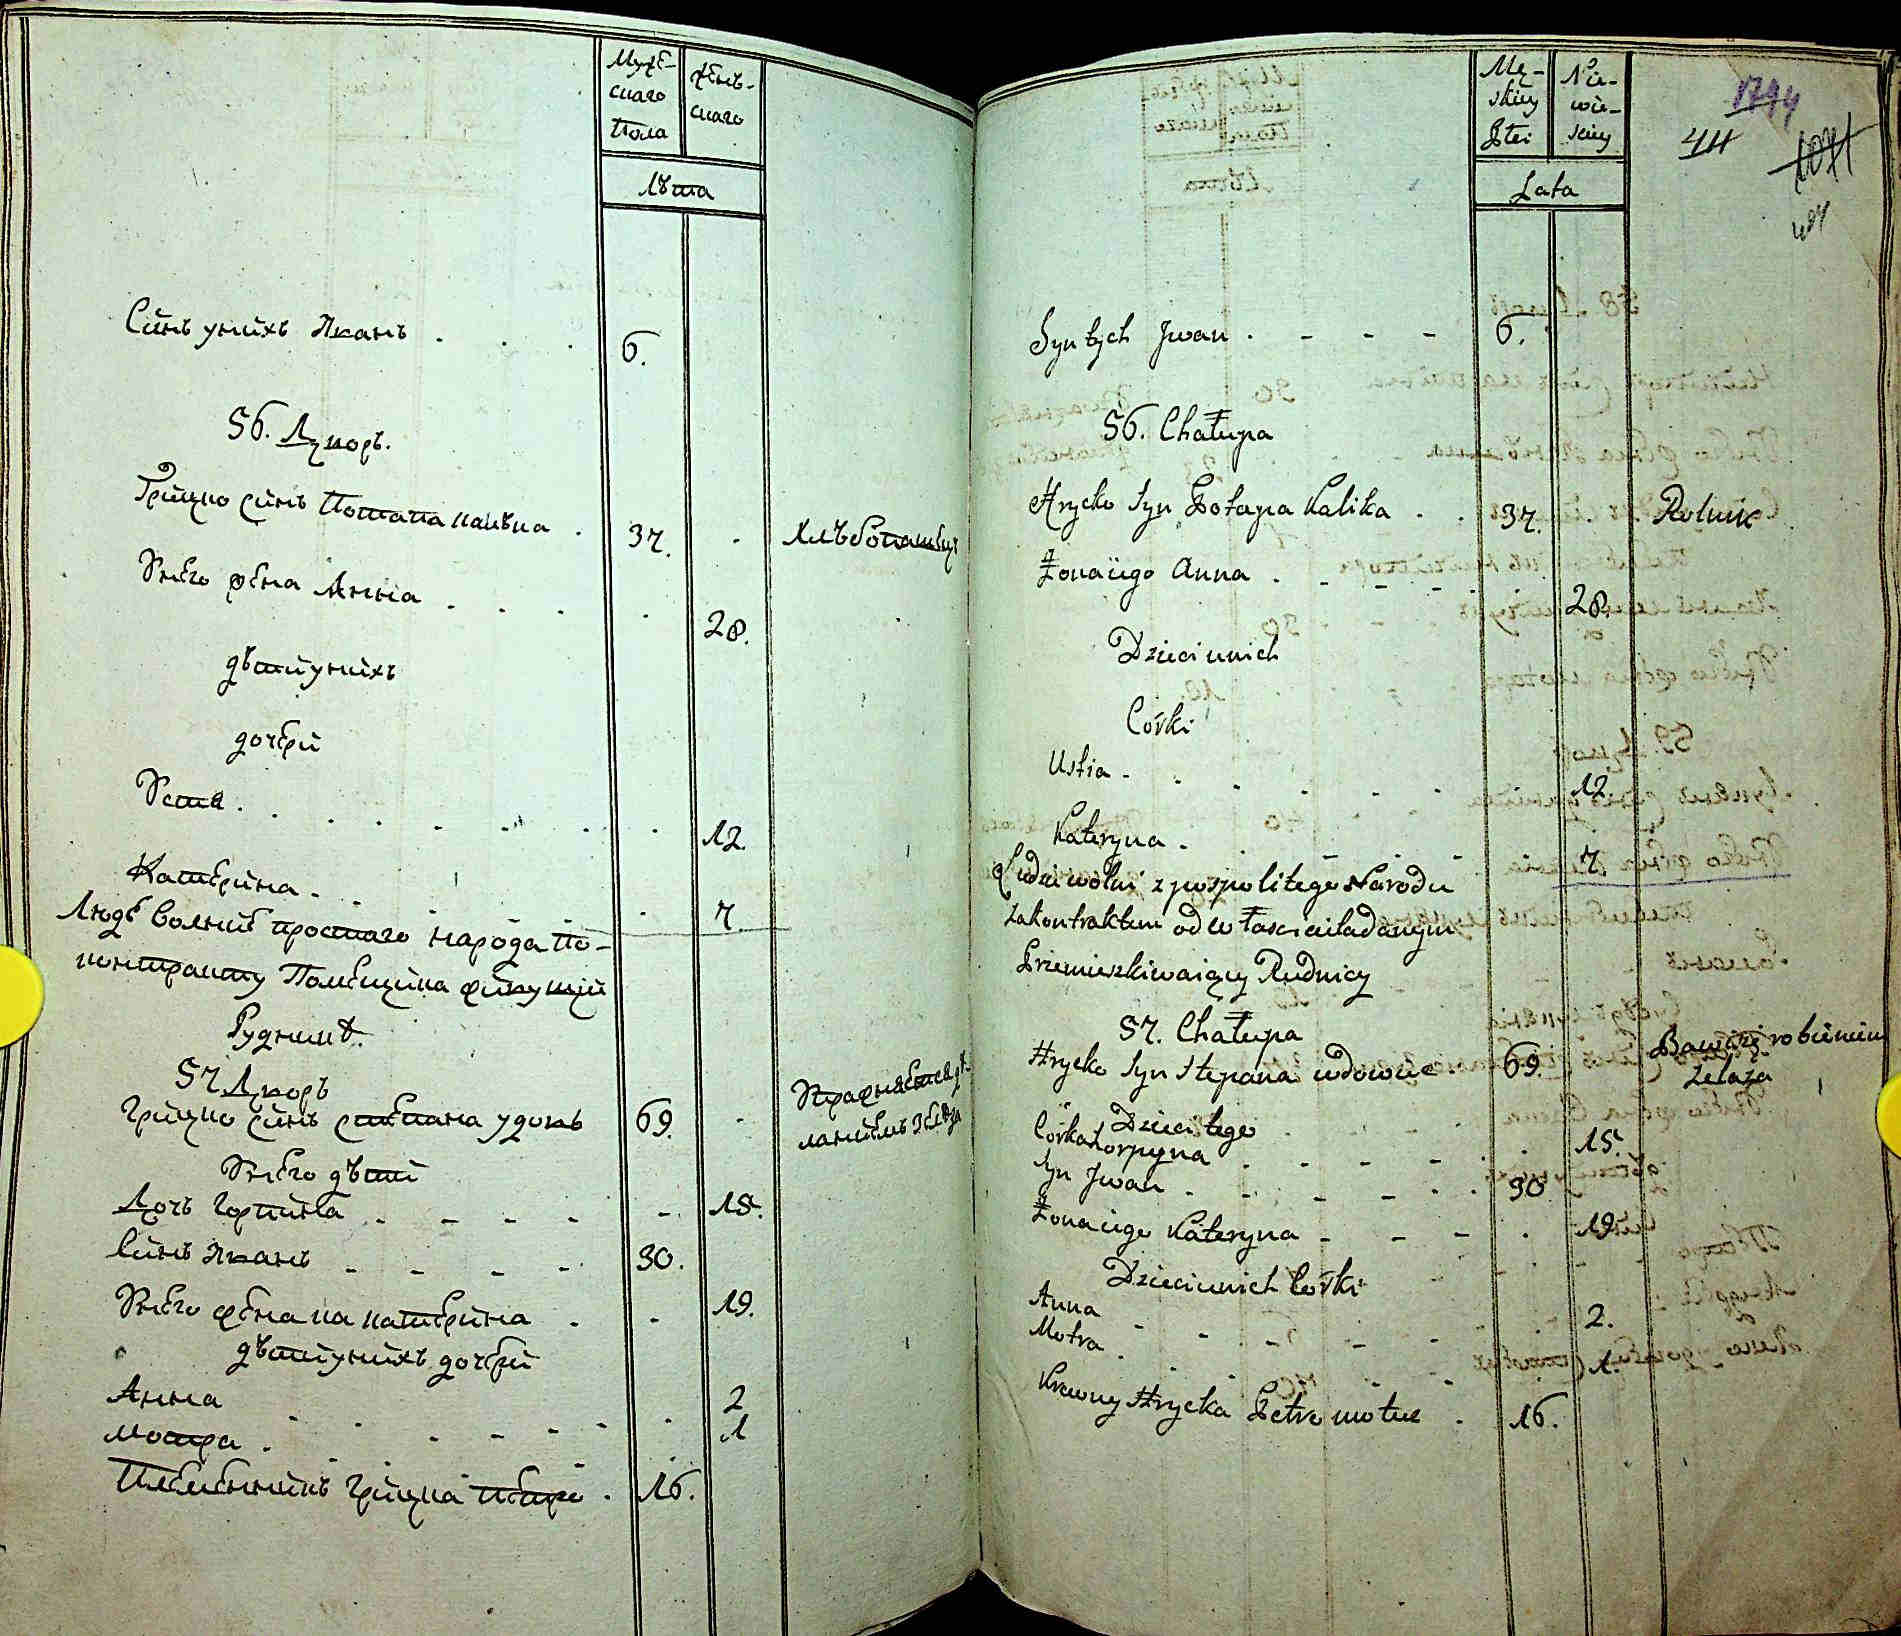 Мужес-
скаго
Пола
Женъ-
скаго
Лѣта
Синъ унихъ Иванъ . . . 6.
56. Двиоръ.
Грицко синъ Потапа калѣка . 37. . Хлѣбопашецъ
Унего жена Анна . . . . 28.
дѣти унихъ
дочери
Устя . . . . . . . 12.
Катерина . . . . 7.
Люде волние простаго народа По-
контракту Помещика живущии
Руднике.
57. Дворъ
Грицко синъ степана удовъ 69. -
Упражняется дѣ-
ланиемъ железа
Унего дѣти
Дочь Горпина . - - - - 15.
Синъ Иванъ - - - - 30.
Унего женака катерина . - 19.
дѣти унихъ дочери
Анна . . . . . 2
мотра . . - - - 1
Племенникъ Грицка петро . 16.
Mę-
skiey
Płci
Nie-
wie-
skiey
Lata
1794
411
1071
Syn tych Jwan . - - - 6.
56. Chałupa
Hrycko syn Potapa Kalika . . 37. Rolnik
Żona iego Anna . - - - . 28.
Dzieci u nich
Córki
Ustia - . . . . . 12
Kateryna - . . . 7
Ludzie wolni z pospolitego Narodu
za kontraktem od w łasciciela danym
Przemieszkiwaiący Rudnicy
57. Chałupa
Hrycko syn Stepana wdowiec . 69. Bawi się robieniem
żelaza
Dzieci tego
Córka Horpyna . - - - - 15.
syn Jwan . - - - - . 30
Żona iego Kateryna - - - - . 19.
Dzieci u nich Córki
Anna - - - - - 2.
Motra . . - - - 1.
Krewny Hrycka Petro . 16.